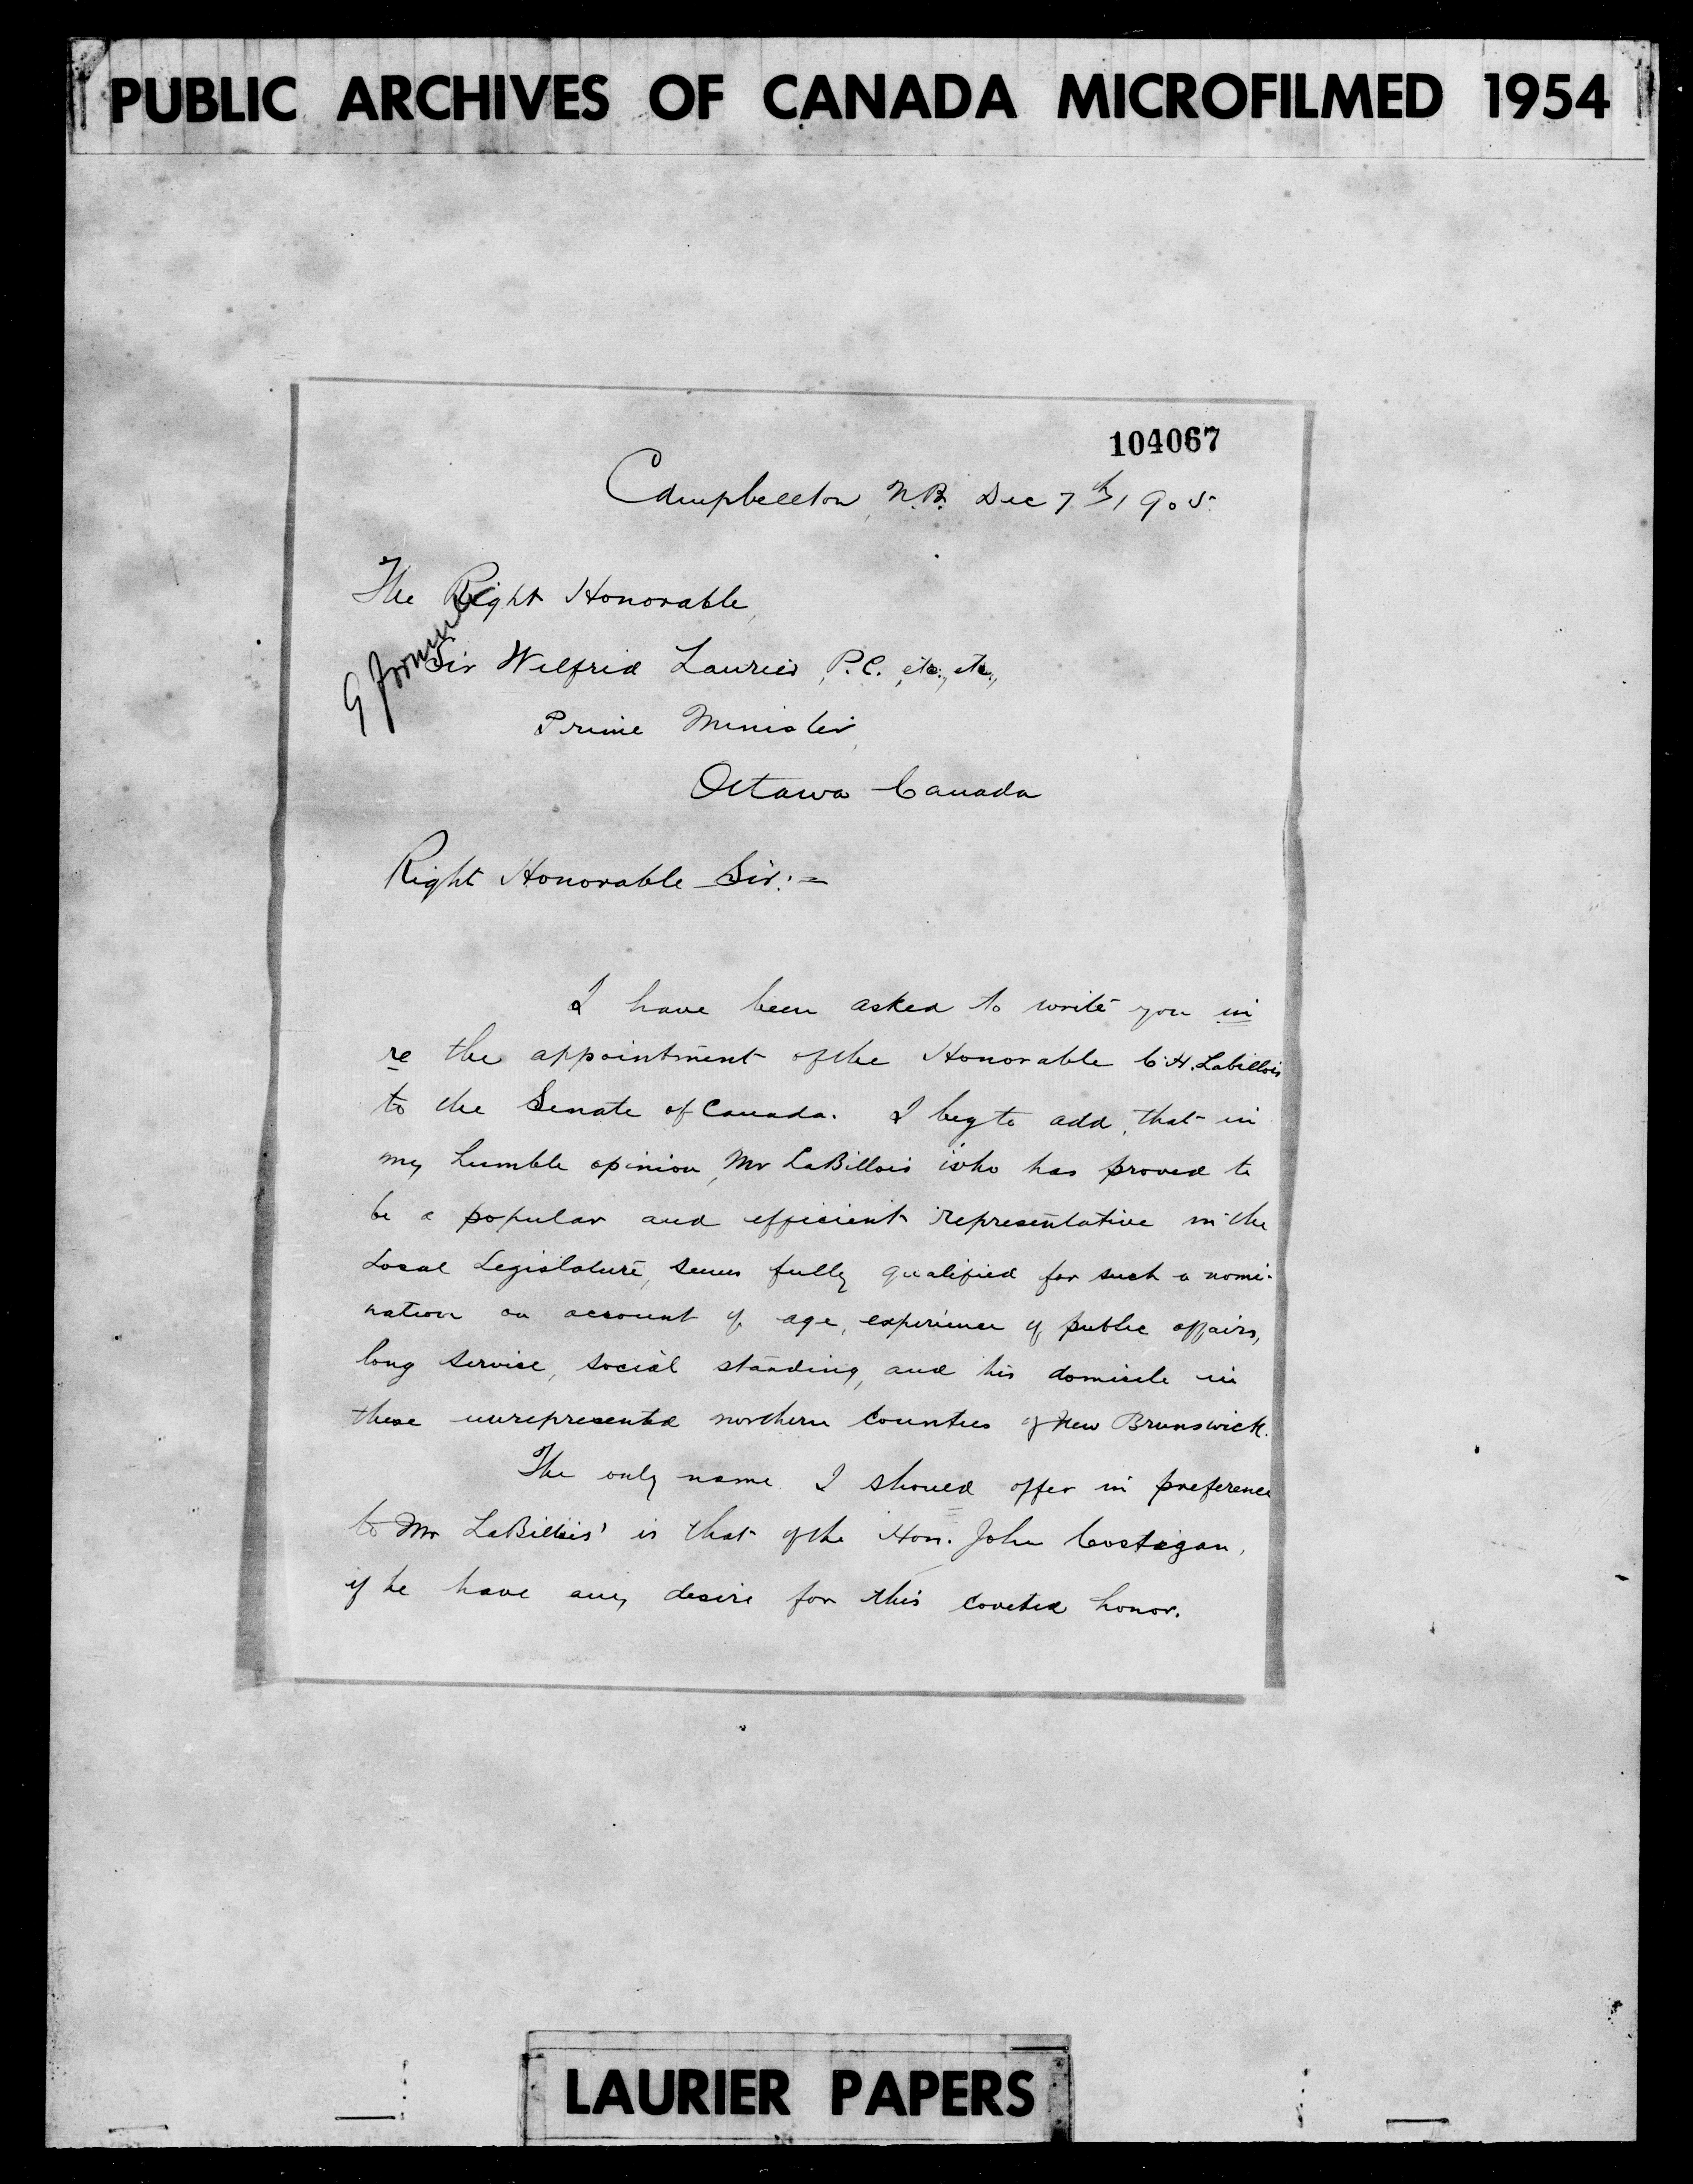 PUBLIC ARCHIVES OF CANADA MICROFILMED 1954
104067
Campbellton, N.B. Dec 7th, 1905.
The Right Honorable,
Sir Wilfrid Laurier, P.C. etc., etc.,
Prime Minister,
Ottawa Canada
Right Honorable Sir:=
I have been asked to write you in
re the appointment of the Honorable C.H. Labillois
to the Senate of Canada. I beg to add, that in
my humble opinion, Mr LaBillois who has proved to
be a popular and efficient representative in the
Local Legislature, seems fully qualified for such a nomi-
nation on account of age, experience of public affairs,
long service, social standing, and his domicile in
these unrepresented northern counties of New Brunswick.
The only name I should offer in preference
to Mr LaBillois' is that of the Hon. John Costigan,
if he have any desire for this coveted honor.
LAURIER PAPERS